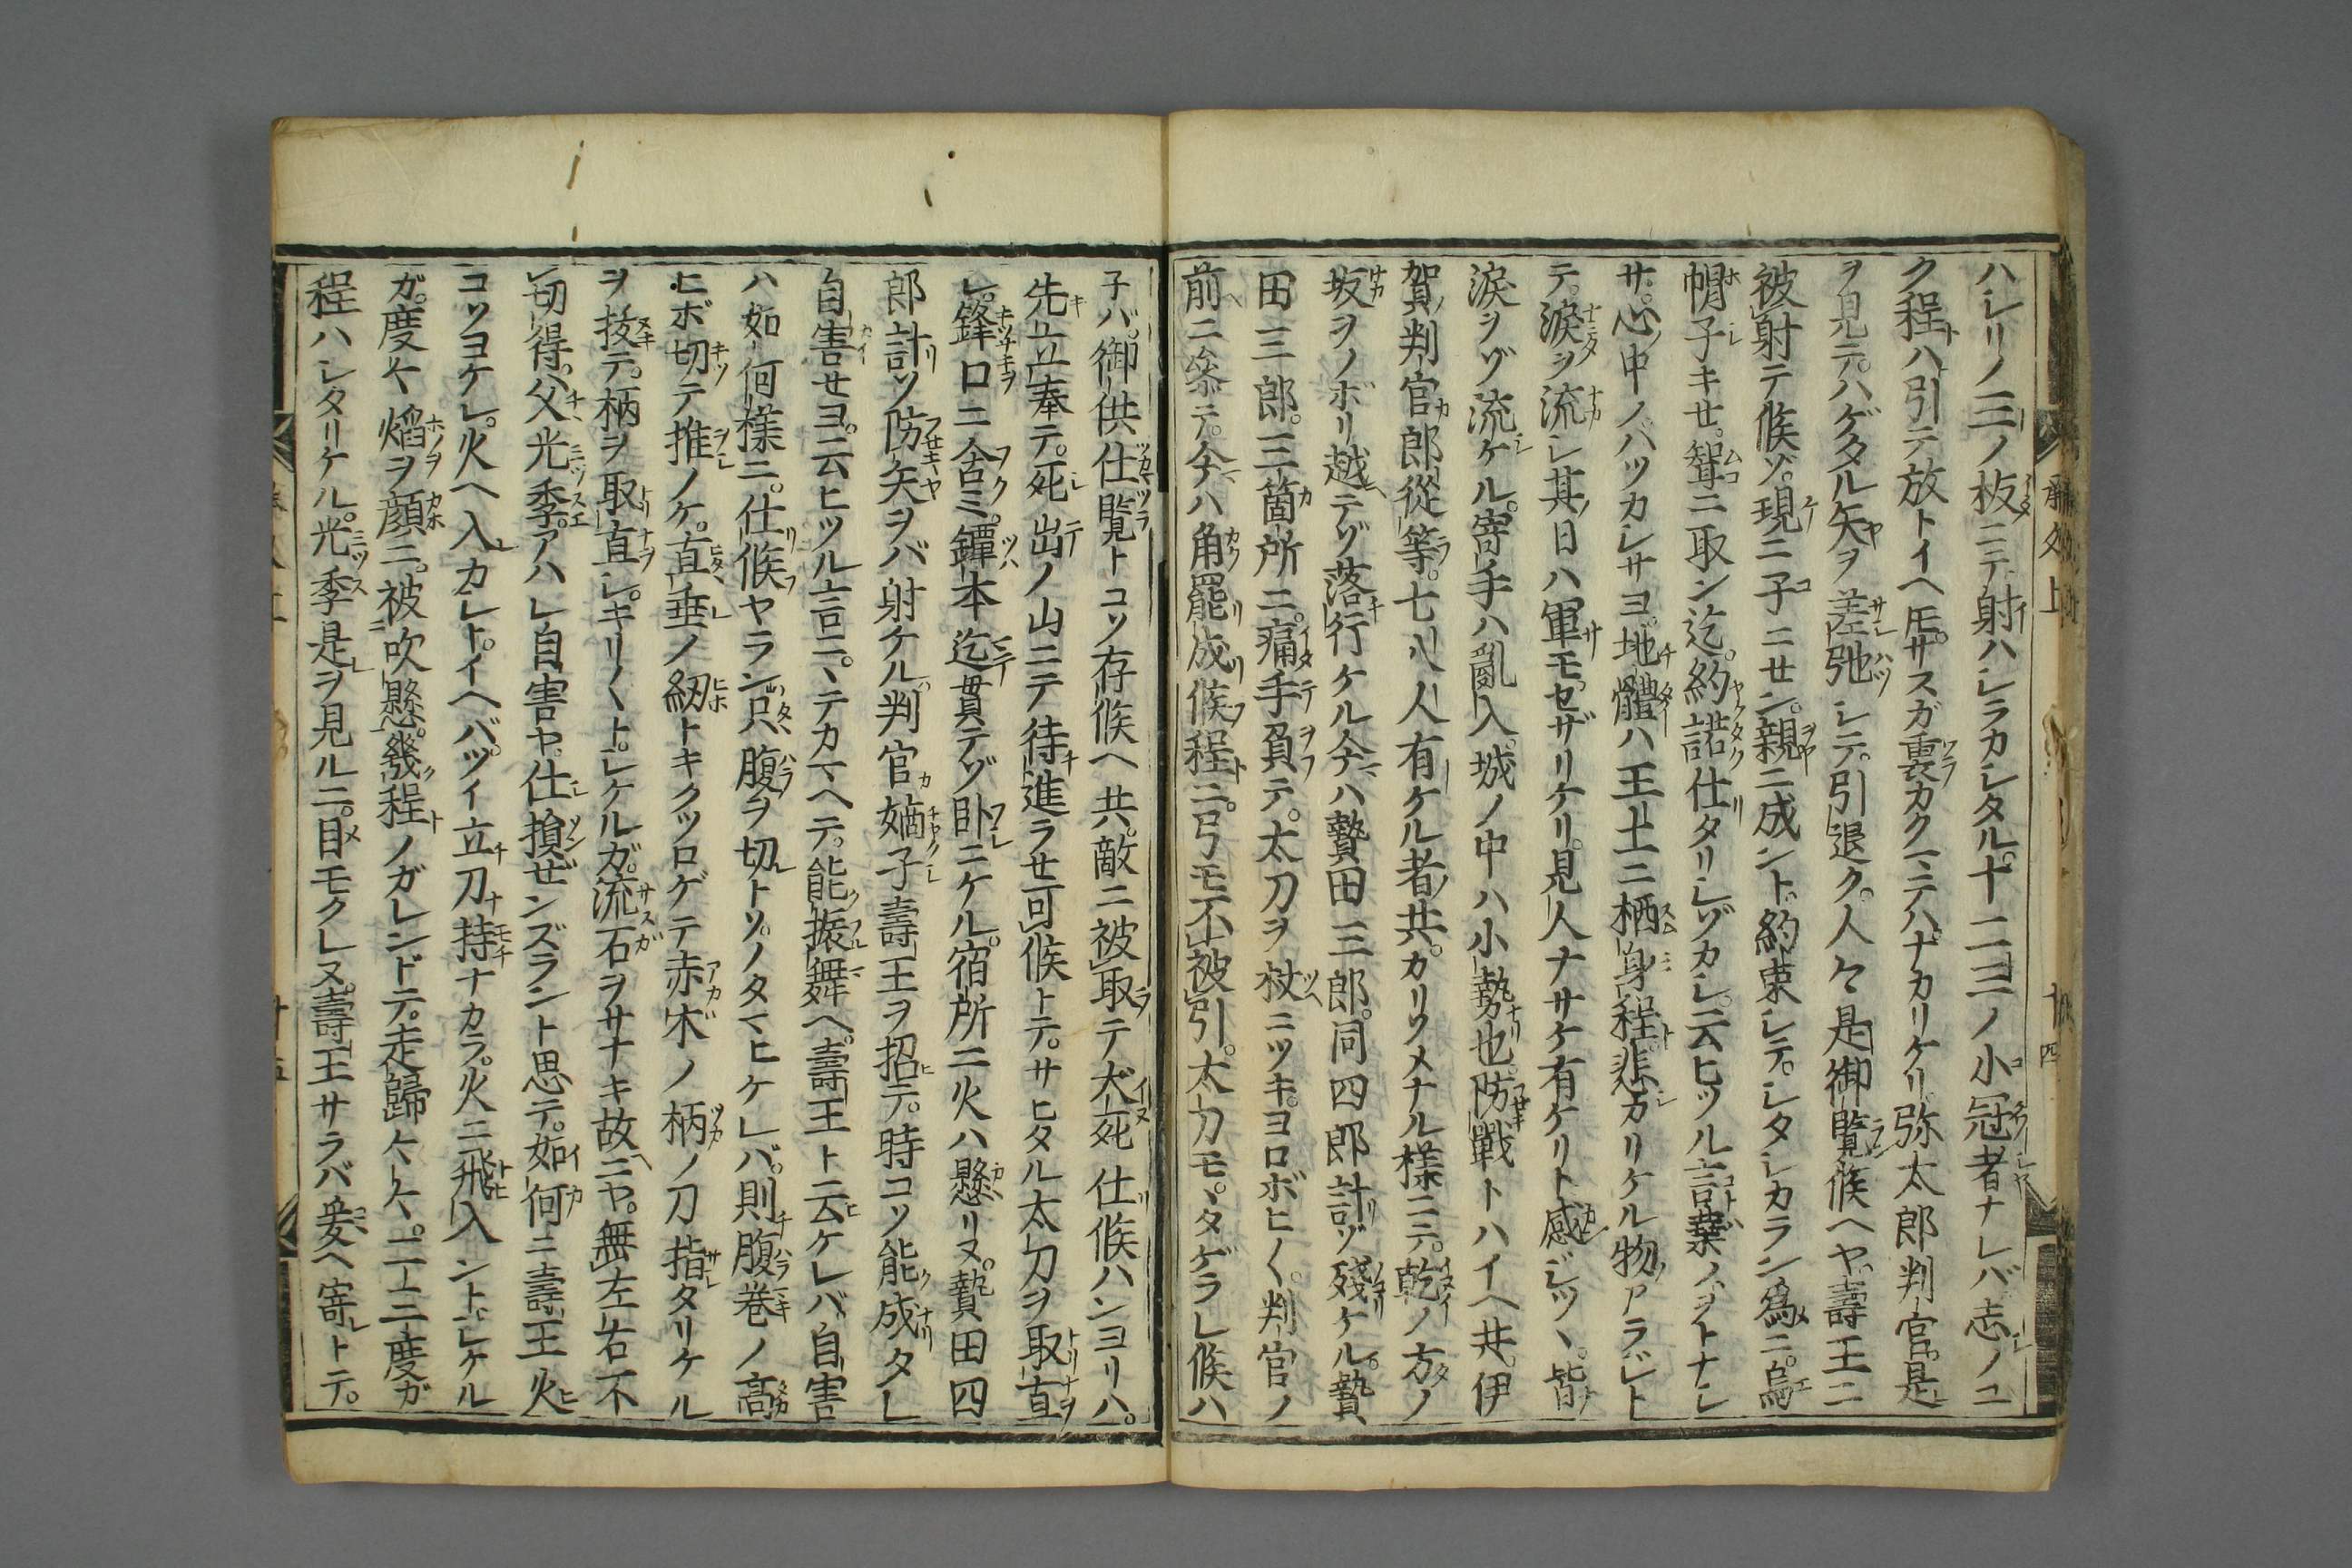 ハシリノ三ノ板ニテ射ハシラカシタル。十二三ノ小冠者ナレバ志ノユ
ク程ハ引テ放トイヘ𪜈。サスガ裏カクマテハナカリケリ。弥太郎判官。是
ヲ見テ。ハゲタル矢ヲ差弛シテ。引退ク。人々是御覧候ヘヤ。壽王ニ
被射テ候ゾ。現ニ子ニセン。親ニ成ント。約束シテ。シタシカラン為ニ。烏
帽子キセ。聟ニ取ン迄。約諾仕タリシゾカシ。云ヒツル言葉ノ。ヲトナシ
サ。心中ノハツカシサヨ。地體ハ王土ニ栖身程。悲カリケル物アラジト
テ。涙ヲ流シ其日ハ軍モセザリケリ。見人ナサケ有ケリト感ジツヽ。皆
涙ヲゾ流ケル。寄手ハ亂入。城ノ中ハ小勢也。防戰トハイヘ共。伊
賀判官郎從等。七八人有ケル者共。カリソメナル様ニテ。乾ノ方ノ
坂ヲノボリ越テゾ落行ケル。今ハ贄田三郎。同四郎計ゾ殘ケル。贄
田三郎。三箇所ニ。痛手負テ。太刀ヲ杖ニツキ。ヨロボヒ〱。判官ノ
前ニ参テ。今ハ角罷成候程ニ。弓モ不被引。太刀モヽタゲラレ候ハ
子バ。御供仕覧トコソ存候ヘ共。敵ニ被取テ犬死仕候ハンヨリハ。
先立奉テ。死出ノ山ニテ待進ラセ可候トテ。サヒタル太刀ヲ取直
シ。鋒口ニ含ミ。鐔本迄貫テゾ臥ニケル。宿所ニ火ハ懸リヌ。贄田四
郎計ソ防矢ヲバ射ケル。判官嫡子壽王ヲ招テ。時コソ能成タレ
自害セヨ。云ヒツル言ニ。テカマヘテ。能振舞ヘ。壽王ト云ケレバ。自害
ハ如何様ニ。仕候ヤラン。只腹ヲ切トソ。ノタマヒケレバ。則腹巻ノ高
ヒボ切テ推ノケ。直垂ノ紐トキクツロゲテ赤木ノ柄ノ刀指タリケル
ヲ抜テ。柄ヲ取直シ。キリ〱ト。シケルガ。流石ヲサナキ故ニヤ。無左右不
切得。父光季。アハレ自害ヤ。仕損ぜンズラント思テ。如何ニ壽王火
コソヨケレ。火ヘ入カシト。イヘバ。ツイ立刀持ナカラ。火ニ飛入ントシケル
ガ。度々焔ヲ顔ニ。被吹懸。幾程ノガレンドテ。走歸々々。二三度ガ
程ハシタリケル。光季是ヲ見ルニ。目モクレヌ。壽王サラバ爰ヘ寄トテ。